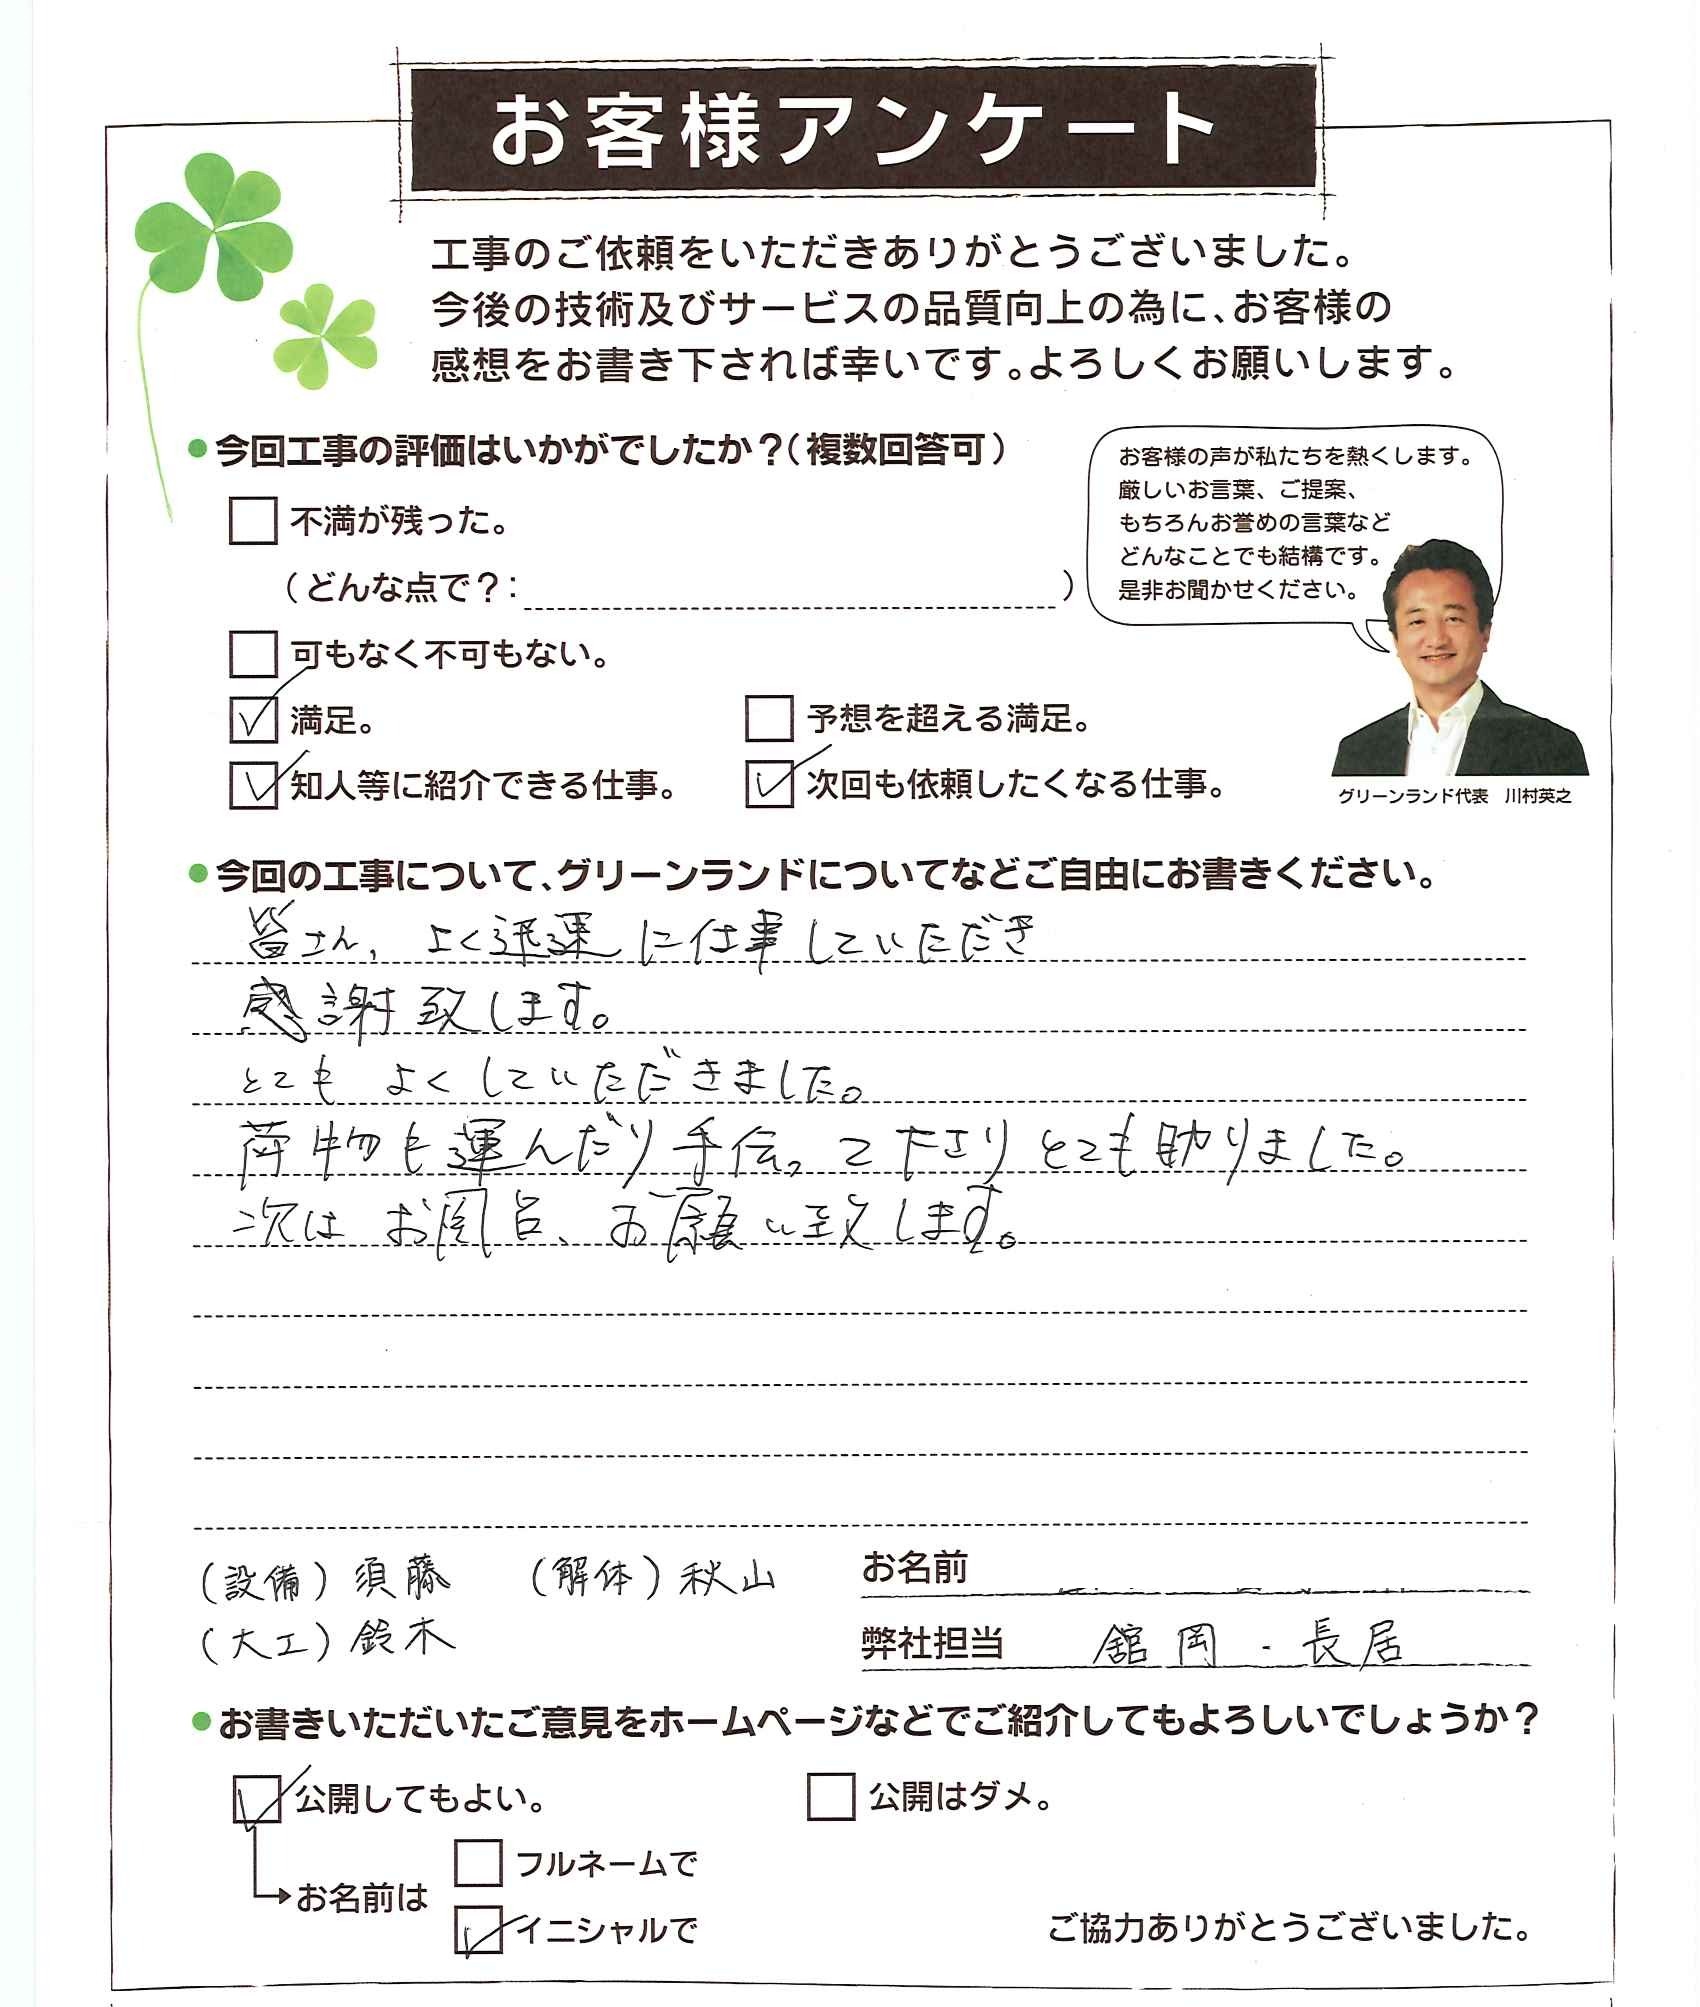 お客様アンケート
工事のご依頼をいただきありがとうございました。
今後の技術及びサービスの品質向上の為に、お客様の
感想をお書き下されば幸いです。よろしくお願いします。
●今回工事の評価はいかがでしたか？（複数回答可）
不満が残った。
（どんな点で？：　）
可もなく不可もない。
満足。
予想を超える満足。
知人等に紹介できる仕事。
次回も依頼したくなる仕事。
お客様の声が私たちを熱くします。
厳しいお言葉、ご提案、
もちろんお誉めの言葉など
どんなことでも結構です。
是非お聞かせください。
グリーンランド代表　川村英之
●今回の工事について、グリーンランドについてなどご自由にお書きください。
皆さん、よく迅速に仕事していただき
感謝致します。
とても よくしていただきました。
荷物も運んだり手伝って下さりとても助りました。
次は お風呂、お願い致します。
（設備）須藤　（解体）秋山
（大工）鈴木
お名前
弊社担当　舘岡・長居
●お書きいただいたご意見をホームページなどでご紹介してもよろしいでしょうか？
公開してもよい。
公開はダメ。
お名前は
フルネームで
イニシャルで
ご協力ありがとうございました。